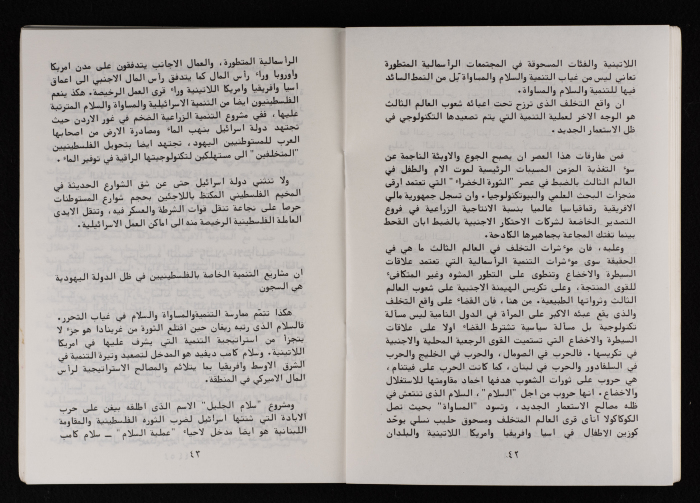 اللاتينية والفئات المسحوقة في المجتمعات الرأسمالية المتطورة
تعاني ليس من غياب التنمية والسلام والمساواة بل من النمط السائد
فيها للتنمية والسلام والمساواة.
ان واقع التخلف الذى ترزح تحت اعبائه شعوب العالم الثالث
هو الوجه الاخر لعملية التنمية التي يتم تصعيدها التكنولوجي في
ظل الاستعمار الجديد.
فمن مفارقات هذا العصر ان يصبح الجوع والاوبئة الناجمة عن
سوء التغذية المزمن المسببات الرئيسية لموت الام والطفل في
العالم الثالث بالضبط في عصر "الثورة الخضراء" التي تعتمد ارقى
منجزات البحث العلمي والبيوتكنولوجيا. وان تسجل جمهورية مالي
الافريقية رقما قياسيا عالميا بنسبة الانتاجية الزراعية في فروع
التصدير الخاضعة لشركات الاحتكار الاجنبية بالضبط ابان القحط
بينما تفتك المجاعة بجماهيرها الكادحة.
وعليه، فان موءشرات التخلف في العالم الثالث ما هي في
الحقيقة سوى موءشرات التنمية الرأسمالية التي تعتمد علاقات
السيطرة والاخضاع وتنطوى على التطور المشوه وغير المتكافىء
للقوى المنتجة، وعلى تكريس الهيمنة الاجنبية على شعوب العالم
الثالث وثرواتها الطبيعية. من هنا، فان القضاء على واقع التخلف
والذى يقع عبئه الاكبر على المرأة في الدول النامية ليس مسألة
تكنولوجية بل مسألة سياسية تشترط القضاء اولا على علاقات
السيطرة والاخضاع التي تستميت القوى الرجعية المحلية والاجنبية
في تكريسها. فالحرب في الصومال، والحرب في الخليج والحرب
في السلفادور والحرب في لبنان، كما كانت الحرب على فيتنام،
هي حروب على ثورات الشعوب هدفها اخماد مقاومتها للاستغلال
والاخضاع. انها حروب من اجل "السلام"، السلام الذى تنتعش في
ظله مصالح الاستعمار الجديد، وتسود "المساواة" بحيث تصل
الكوكاكولا انأى قرى العالم المتخلف ومسحوق حليب نسلي يوحّد
كوزين الاطفال في اسيا وافريقيا وامريكا اللاتينية والبلدان
٤٢
الرأسمالية المتطورة، والعمال الاجانب يتدفقون على مدن امريكا
واوروبا وراء رأس المال كما يتدفق رأس المال الاجنبي الى اعماق
اسيا وافريقيا وامريكا اللاتينية وراء قرى العمل الرخيصة. هكذ ينعم
الفلسطينيون ايضا من التنمية الاسرائيلية والمساواة والسلام المترتبة
عليها، ففي مشروع التنمية الزراعية الضخم في غور الاردن حيث
تجتهد دولة اسرائيل بنهب الماء ومصادرة الارض من اصحابها
العرب للمستوطنيين اليهود، تجتهد ايضا بتحويل الفلسطينيين
"المتخلفين" الى مستهلكين لتكنولوجيتها الراقية في توفير الماء.
ولا تنتني دولة اسرائيل حتى عن شق الشوارع الحديثة في
المخيم الفلسطيني المكتظ باللاجئين بحجم شوارع المستوطنات
حرصا على نجاعة تنقل قوات الشرطة والعسكر فيه، وتنقل الايدى
العاملة الفلسطينية الرخيصة منه الى اماكن العمل الاسرائيلية.
ان مشاريع التنمية الخاصة بالفلسطينيين في ظل الدولة اليهودية
هي السجون
هكذا تتمّم ممارسة التنمية والمساواة والسلام في غياب التحرر.
فالسلام الذى رتبه ريغان حين اقتلع الثورة من غرينادا هو جزء لا
يتجزأ من استراتيجية التنمية التي يشرف عليها في امريكا
اللاتينية. وسلام كامب ديفيد هو المدخل لتصعيد وتيرة التنمية في
الشرق الاوسط وافريقيا بما يتلائم والمصالح الاستراتيجية لرأس
المال الامبركي في المنطقة.
ومشروع "سلام الجليل" الاسم الذى اطلقه بيغن على حرب
الابادة التي شنتها اسرائيل لضرب الثورة الفلسطينية والمقاومة
اللبنانية هو ايضا مدخل لاحياء "عملية السلام" ــ سلام كامب
٤٣